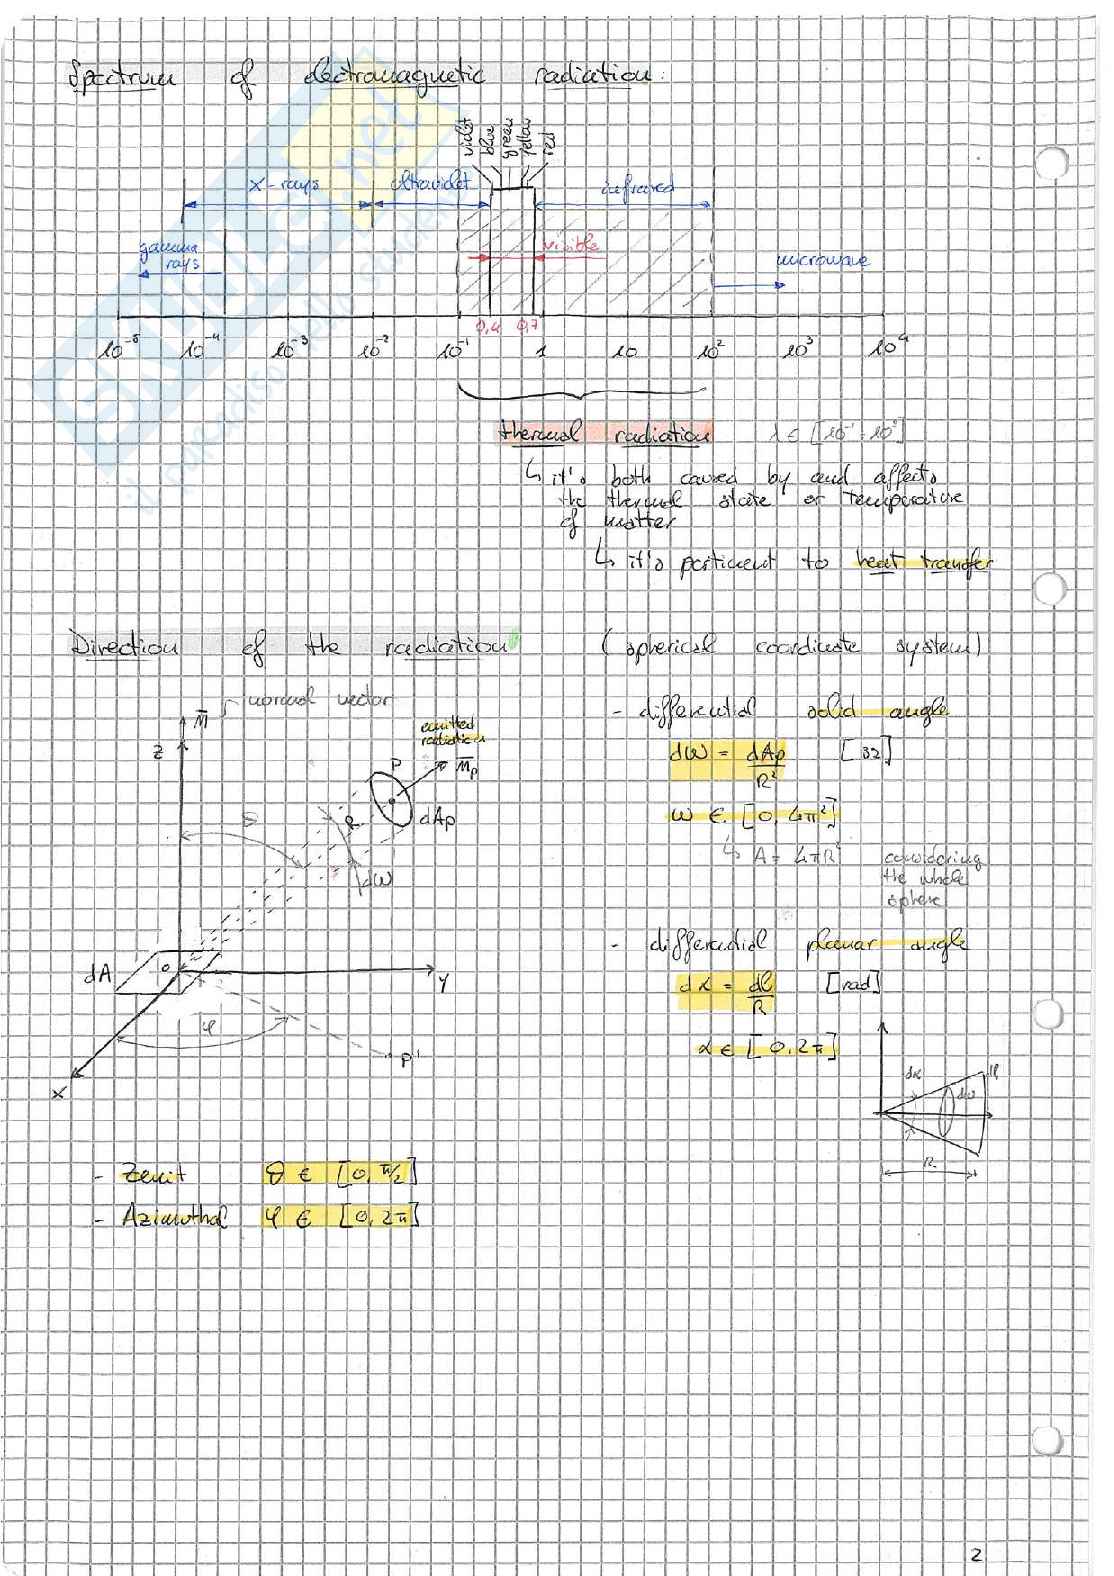 Spectrum of electromagnetic radiation:
violet
blue
green
yellow
red
x-rays
ultraviolet
infrared
gamma
rays
visible
microwave
0,4 0,7
10⁻⁵ 10⁻⁴ 10⁻³ 10⁻² 10⁻¹ 1 10 10² 10³ 10⁴
thermal radiation λ ∈ [10⁻¹ ÷ 10²]
↳ it's both caused by and affects
the thermal state or temperature
of matter
↳ it's pertinent to heat transfer
Direction of the radiation (spherical coordinate system)
normal vector
z
emitted
radiation
P
R
dAp
dω
dA
0
y
φ
P'
x
- differential solid angle
dω = dAp / R² [sr]
ω ∈ [0, 4π²]
↳ A = 4πR² considering
the whole
sphere
- differential planar angle
dα = dl / R [rad]
α ∈ [0, 2π]
dα
dω
R
- Zenit θ ∈ [0, π/2]
- Azimuthal φ ∈ [0, 2π]
2
SKUOLA.net
il paradiso dello studente